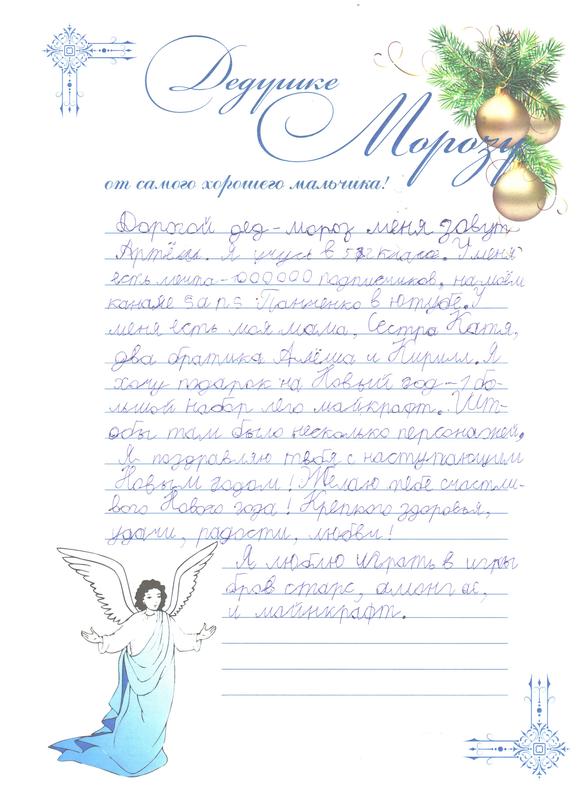 Дедушке
Морозу
от самого хорошего мальчика!
Дорогой дед-мороз меня зовут
Артём. Я учусь в классе. У меня
есть мечта - 1000000 подписчиков, на моём
канале sans Панченко в ютубе. У
меня есть моя мама, Сестра Катя,
два братика Алёша и Кирилл. Я
хочу подарок на Новый год - 1 бо-
льшой набор лего майкрафт. Шт-
обы там было несколько персонажей,
Я поздравляю тебя с наступающим
Новым годом! Желаю тебе счастли-
вого Нового года! Крепкого здоровья,
удачи, радости, любви!
Я люблю играть в игры
брав старс, амонг ас,
и майнкрафт.